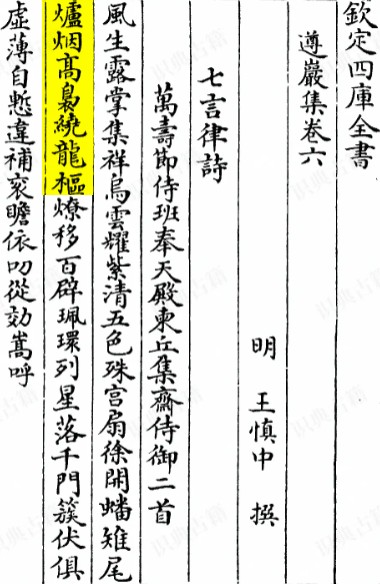 欽定四庫全書
遵巖集卷六
明 王慎中 撰
七言律詩
萬壽節侍班奉天殿東丘集齋侍御二首
風生露掌集祥烏雲耀紫清五色殊宮扇徐開蟠雉尾
爐烟髙裊繞龍樞燎移百辟珮環列星落千門簇伏俱
虚薄自慙違補衮瞻依叨從効嵩呼